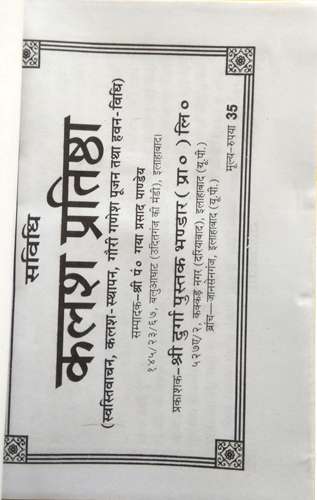 सविधि
कलश प्रतिष्ठा
(स्वस्तिवाचन, कलश-स्थापन, गौरी गणेश पूजन तथा हवन-विधि)
सम्पादक-श्री पं० गया प्रसाद पाण्डेय
१४५/२३/६७, बलुआघाट (उदितगंज की मंडी), इलाहाबाद।
प्रकाशक-श्री दुर्गा पुस्तक भण्डार (प्रा०) लि०
५२७ए/२, कक्कड़ नगर (दरियाबाद), इलाहाबाद (यू.पी.)
ब्रांच-जानसेनगंज, इलाहाबाद (यू.पी.)
मूल्य-रुपया 35